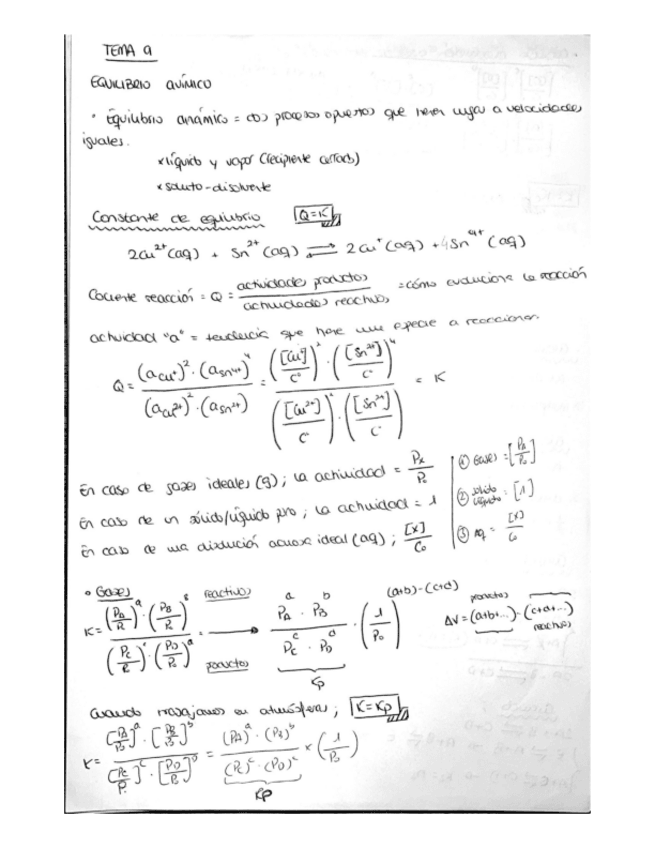 TEMA 9
EQUILIBRIO QUÍMICO
• Equilibrio dinámico = dos procesos opuestos que tienen lugar a velocidades
iguales.
× líquido y vapor (recipiente cerrado)
× soluto-disolvente
Constante de equilibrio Q=K
2Cu²⁺(aq) + Sn²⁺(aq) ⇌ 2Cu⁺(aq) + 4Sn⁴⁺(aq)
Cociente reacción = Q = actividades productos / actividades reactivos = cómo evoluciona la reacción
actividad "a" = tendencia que tiene una especie a reaccionar
Q = (a Cu⁺)² · (a Sn⁴⁺)⁴ / (a Cu²⁺)² · (a Sn²⁺) = ([Cu⁺]/C°)² · ([Sn²⁺]/C°)⁴ / ([Cu²⁺]/C°)² · ([Sn²⁺]/C°) = K
En caso de gases ideales (g); la actividad = Px/P₀
En caso de un sólido/líquido puro; la actividad = 1
En caso de una disolución acuosa ideal (aq); [x]/C₀
① Gases = [PA/P₀]
② sólido líquido = [1]
③ Aq = [x]/C₀
• Gases
reactivos
K = (PA/P₀)ᵃ · (PB/P₀)ᵇ / (PC/P₀)ᶜ · (PD/P₀)ᵈ = PAᵃ · PBᵇ / PCᶜ · PDᵈ · (1/P₀)⁽ᵃ⁺ᵇ⁾⁻⁽ᶜ⁺ᵈ⁾
productos
Kp
productos
ΔV = (a+b+...) - (c+d+...)
reactivos
Cuando trabajamos en atmósferas; K=Kp
K = [PA/P₀]ᵃ · [PB/P₀]ᵇ / [PC/P₀]ᶜ · [PD/P₀]ᵈ = (PA)ᵃ · (PB)ᵇ / (PC)ᶜ · (PD)ᶜ × (1/P₀)
Kp